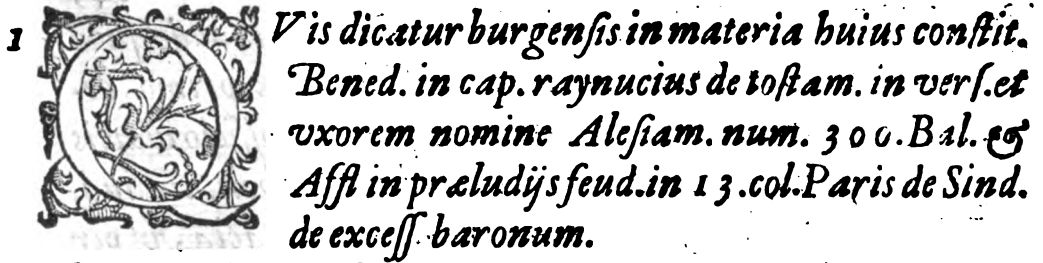 1 QVis dicatur burgenſis in materia huius conſtit.
Bened. in cap. raynucius de toſtam. in verſ. et
vxorem nomine Aleſiam. num. 300. Bal. &
Affl in præludijs feud. in 13. col. Paris de Sind.
de exceſſ. baronum.